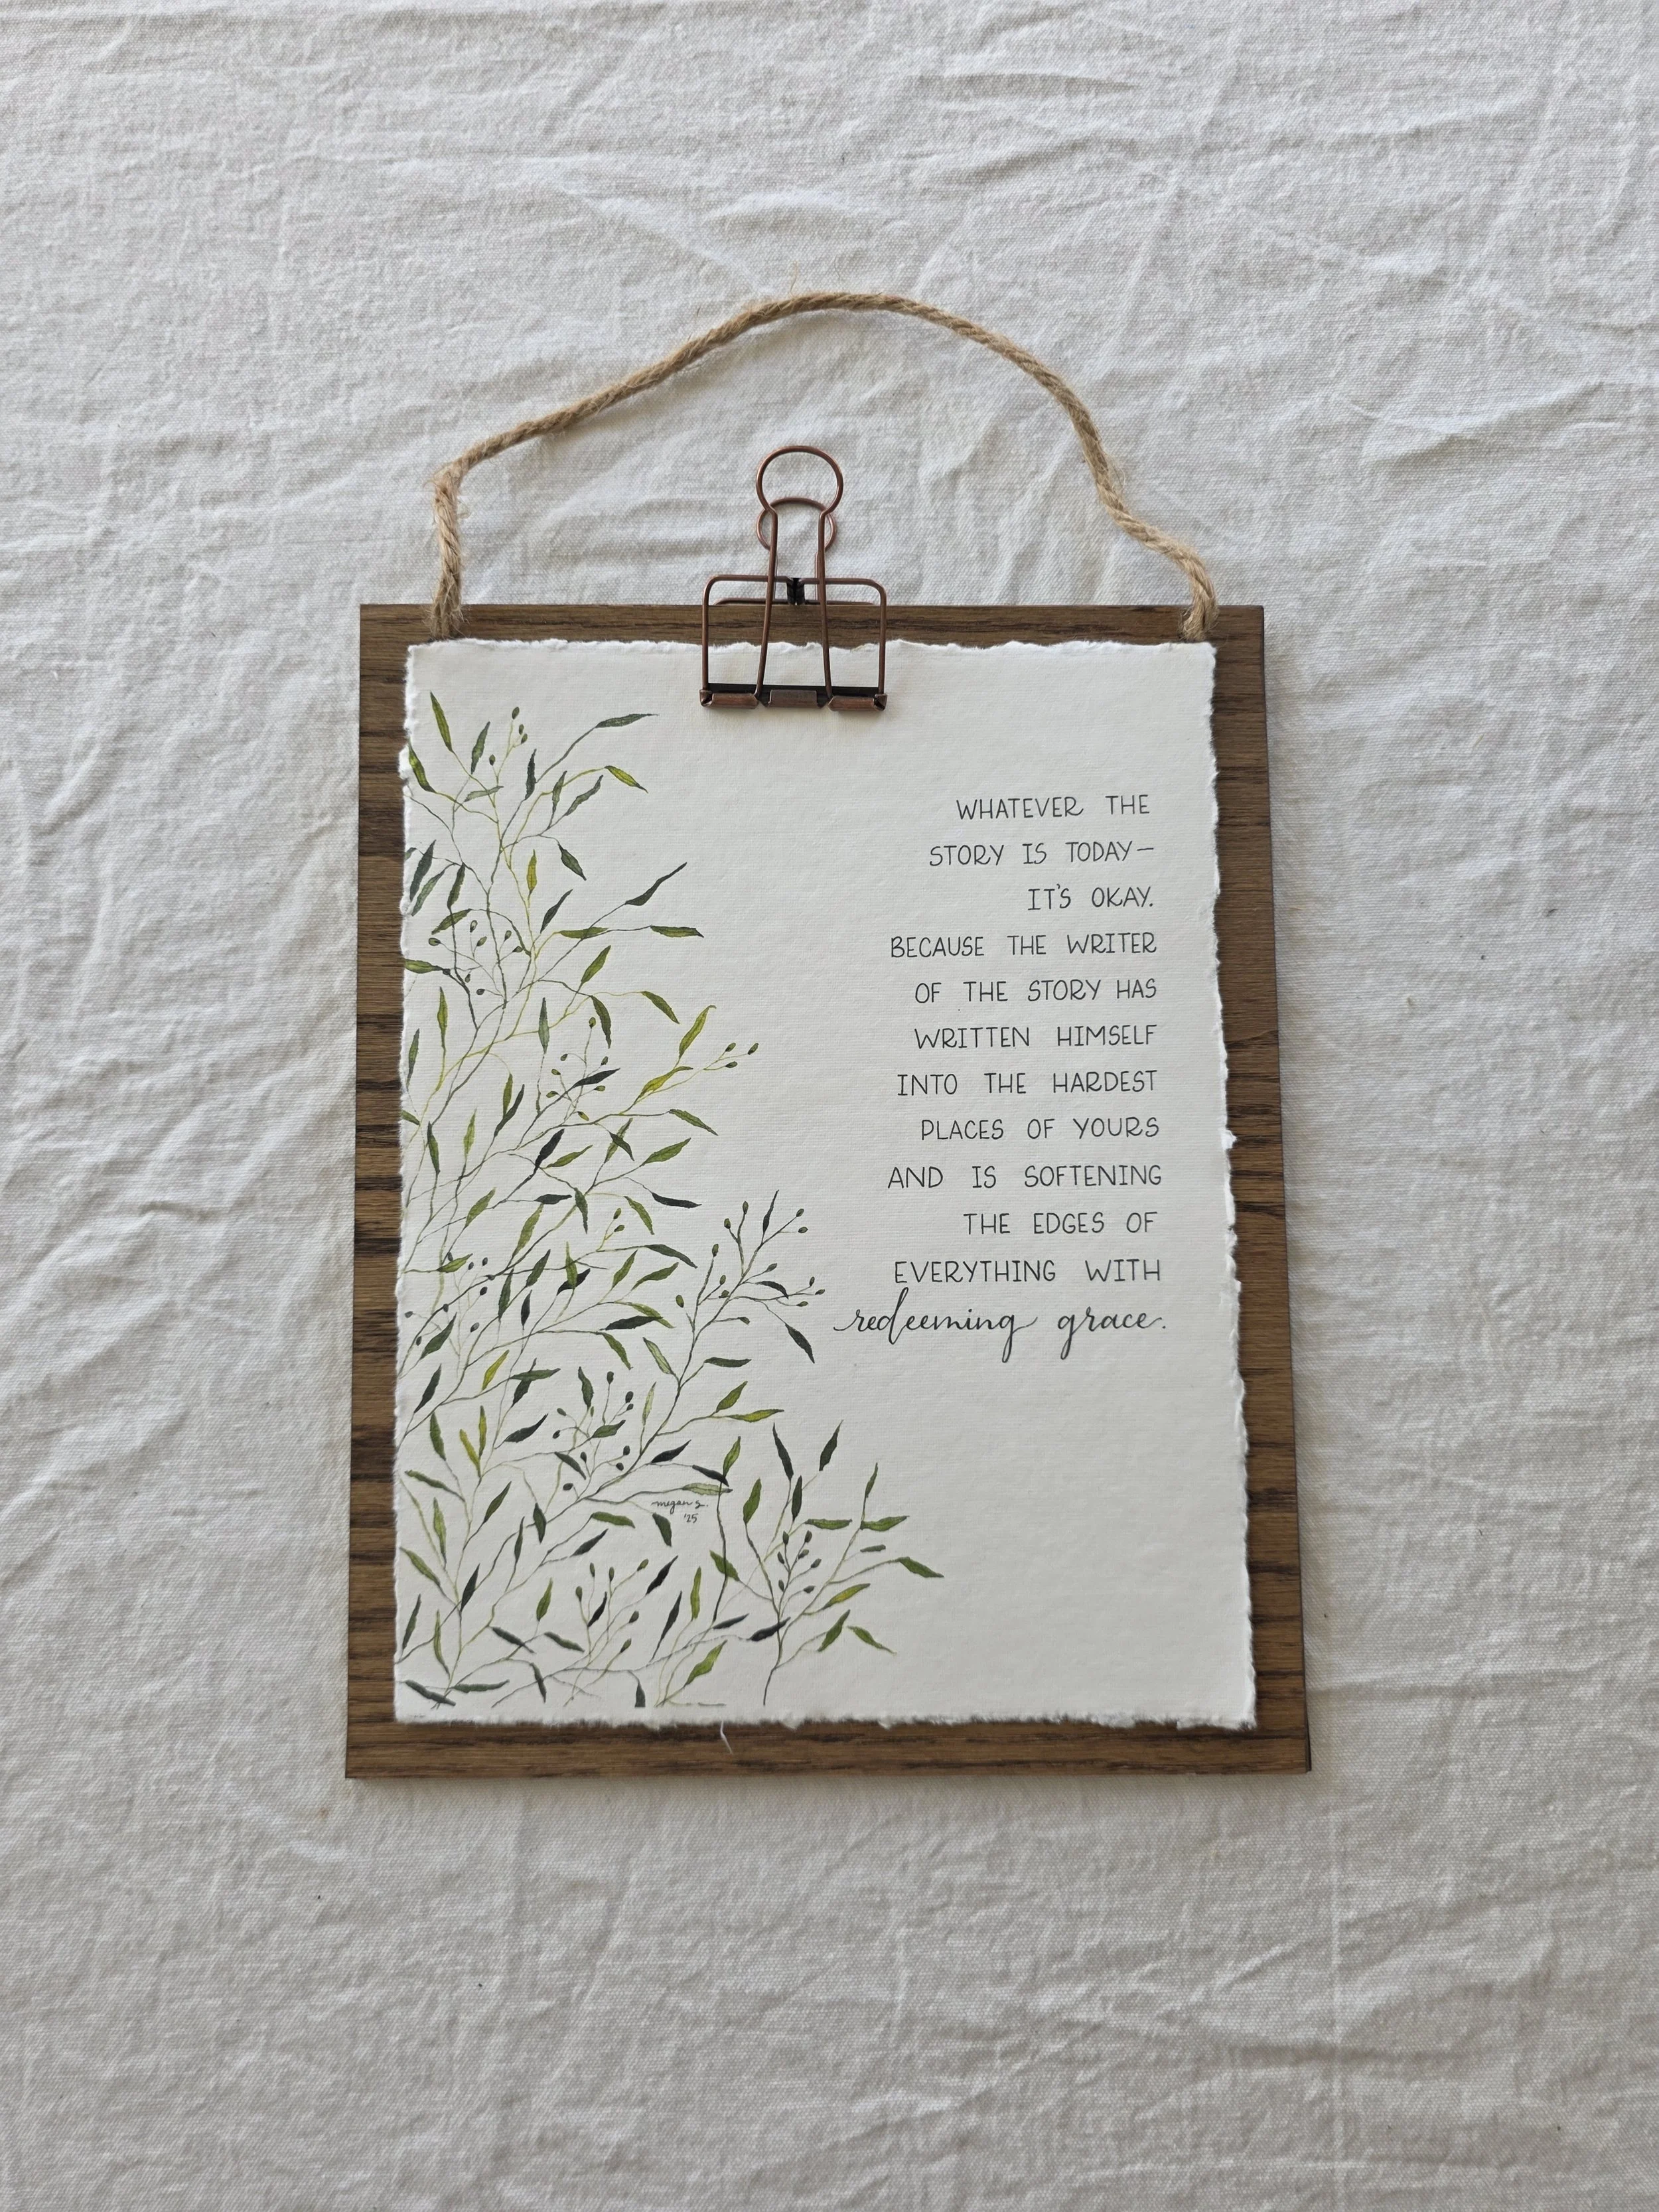 WHATEVER THE
STORY IS TODAY—
IT'S OKAY.
BECAUSE THE WRITER
OF THE STORY HAS
WRITTEN HIMSELF
INTO THE HARDEST
PLACES OF YOURS
AND IS SOFTENING
THE EDGES OF
EVERYTHING WITH
redeeming grace.
megan s.
'25